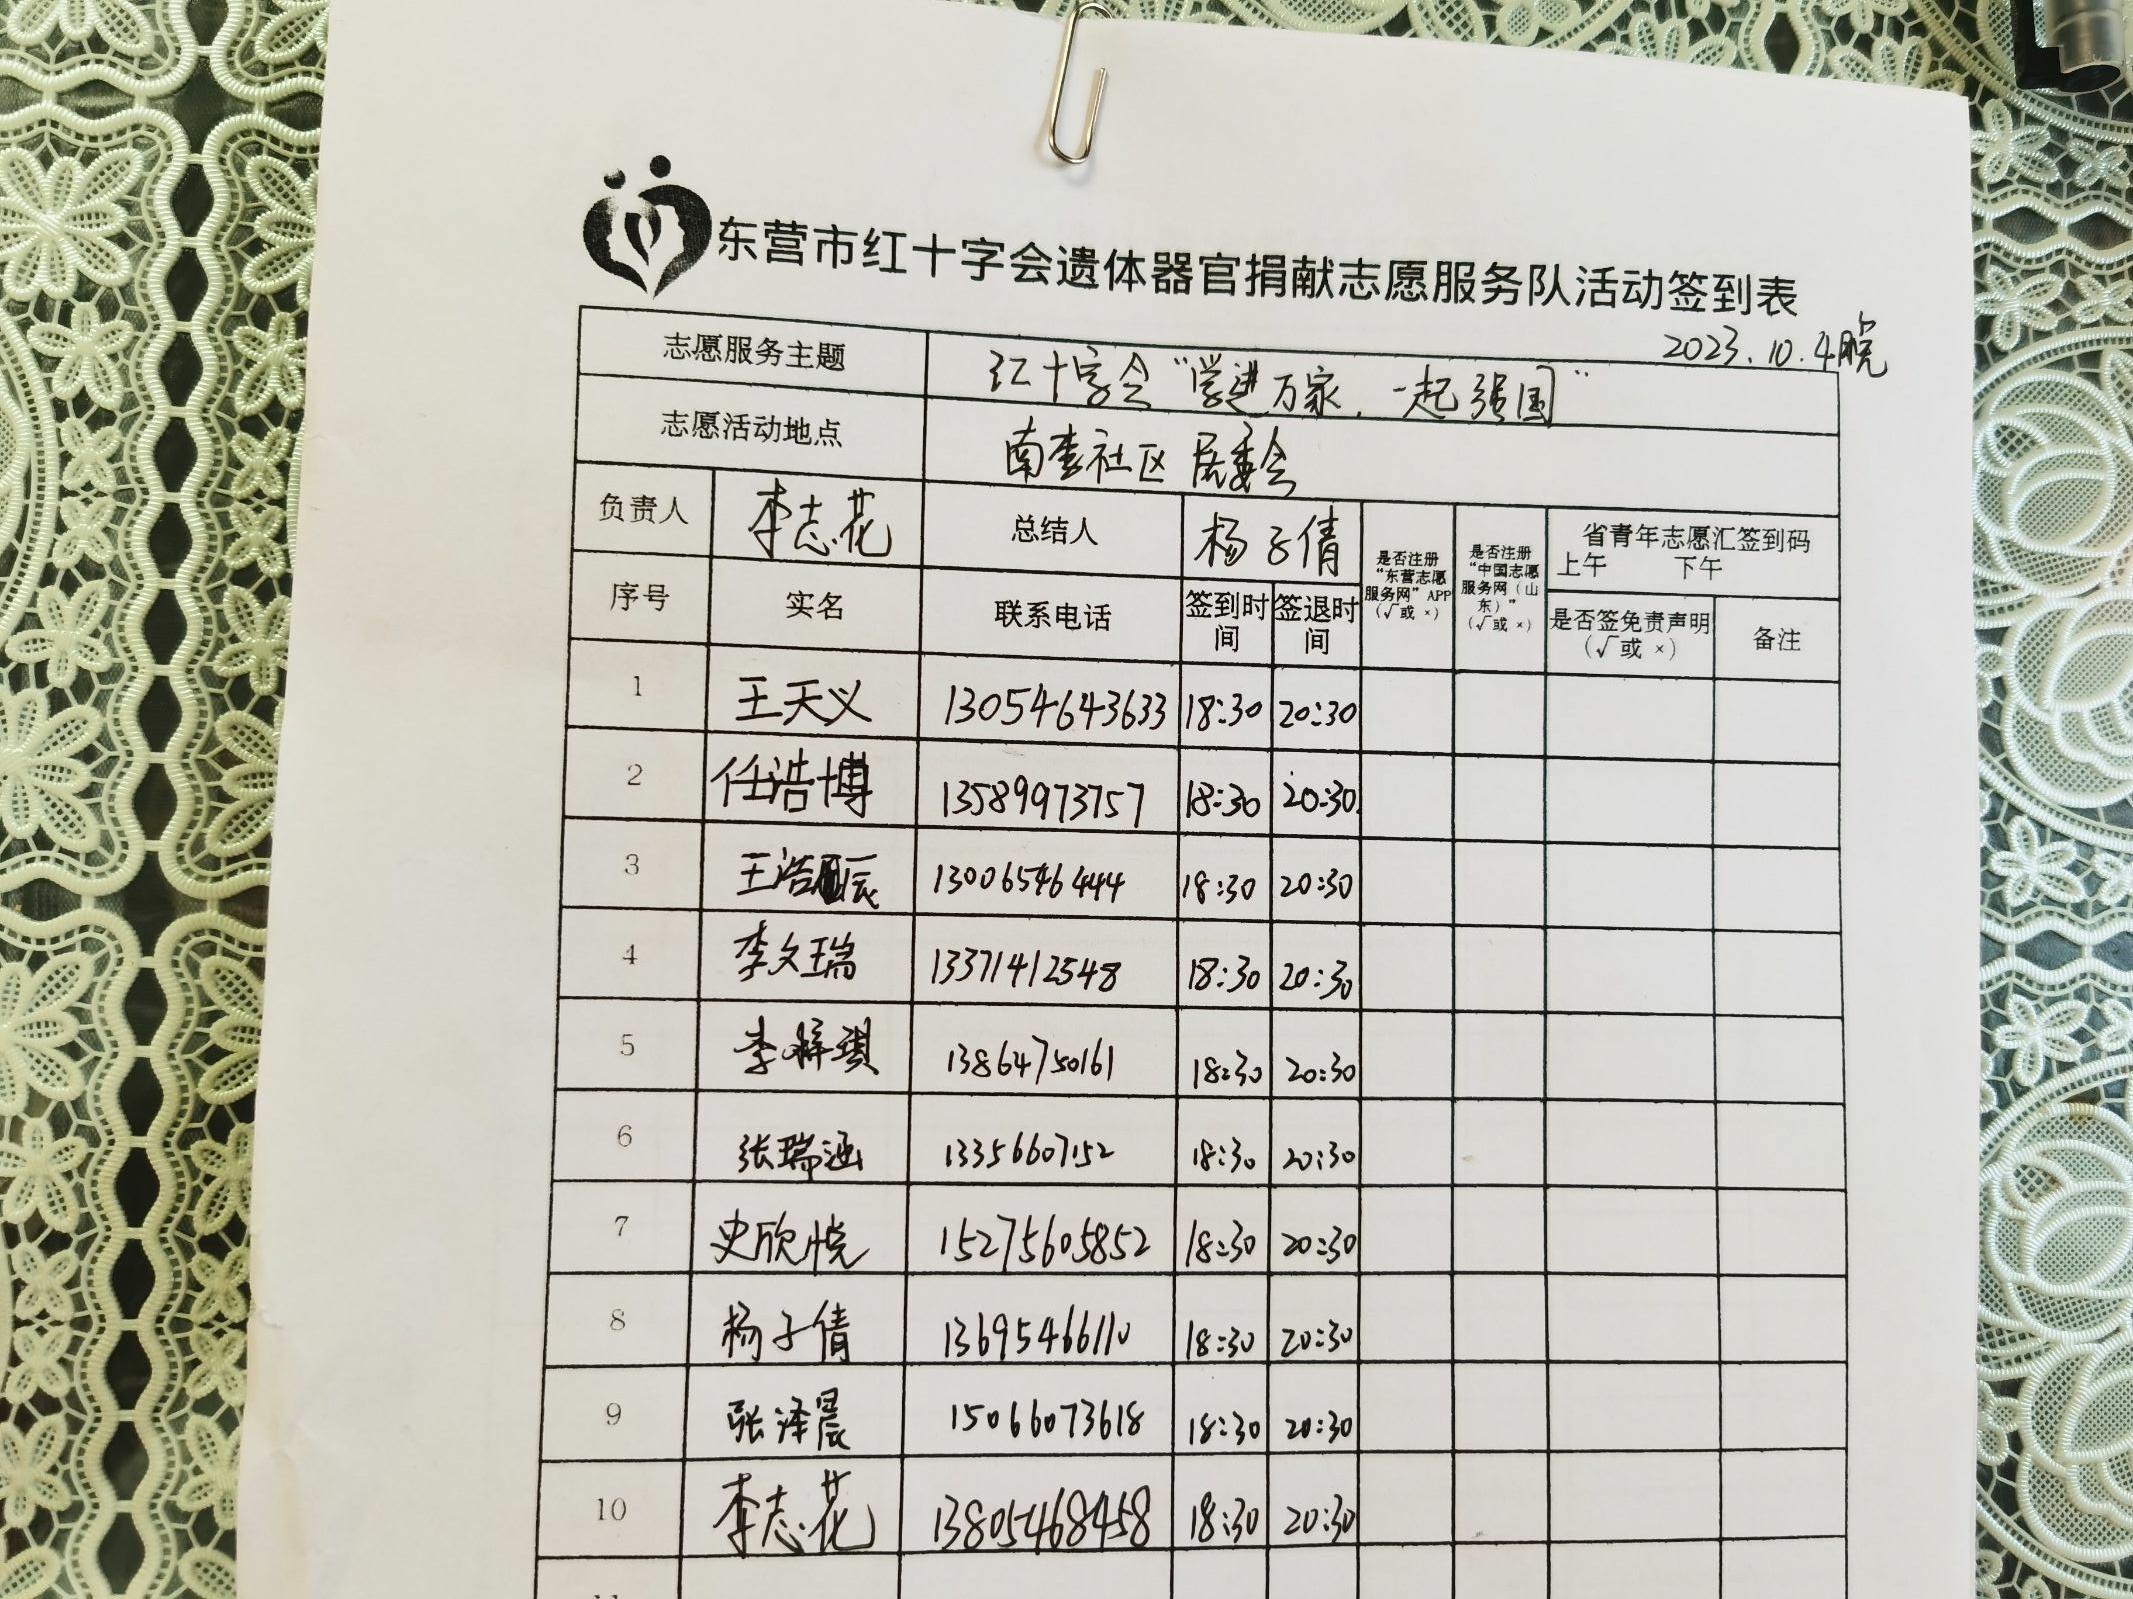 东营市红十字会遗体器官捐献志愿服务队活动签到表
2023.10.4晚
志愿服务主题 红十字会"学进万家,一起强国"
志愿活动地点 南李社区居委会
负责人 李志花 总结人 杨子倩 是否注册"东营志愿服务网"APP(√或×) 是否注册"中国志愿服务网(山东)"(√或×) 省青年志愿汇签到码 上午 下午
序号 实名 联系电话 签到时间 签退时间 是否签免责声明(√或×) 备注
1 王天义 13054643633 18:30 20:30
2 任浩博 13589973757 18:30 20:30
3 王浩辰 13006546444 18:30 20:30
4 李文瑞 13371412548 18:30 20:30
5 李梓琪 13864750161 18:30 20:30
6 张瑞涵 13356607152 18:30 20:30
7 史欣悦 15275605852 18:30 20:30
8 杨子倩 13695466110 18:30 20:30
9 张泽晨 15066073618 18:30 20:30
10 李志花 13805468458 18:30 20:30